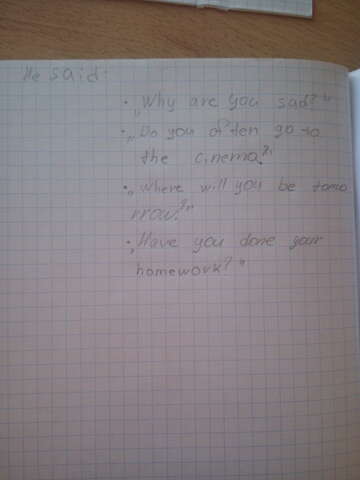 He said:
• „Why are you sad?"
• „Do you often go to
the cinema?"
• „Where will you be tomo
rrow?"
• „Have you done your
homework?"